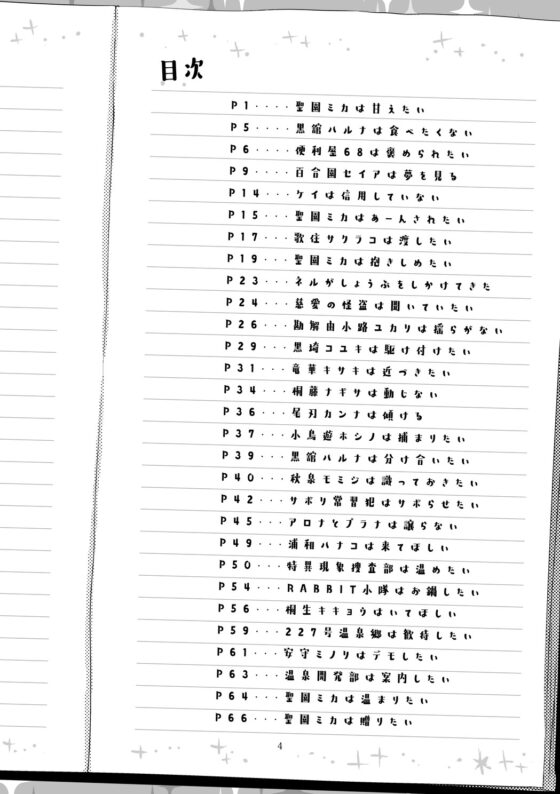 目次
P1････聖園ミカは甘えたい
P5････黒舘ハルナは食べたくない
P6････便利屋68は褒められたい
P9････百合園セイアは夢を見る
P14･･･ケイは信用していない
P15･･･聖園ミカはあーんされたい
P17･･･歌住サクラコは渡したい
P19･･･聖園ミカは抱きしめたい
P23･･･ネルがしょうぶをしかけてきた
P24･･･慈愛の怪盗は聞いていたい
P26･･･勘解由小路ユカリは揺らがない
P29･･･黒崎コユキは駆け付けたい
P31･･･竜華キサキは近づきたい
P34･･･桐藤ナギサは動じない
P36･･･尾刃カンナは傾ける
P37･･･小鳥遊ホシノは捕まりたい
P39･･･黒舘ハルナは分け合いたい
P40･･･秋泉モミジは識っておきたい
P42･･･サボり常習犯はサボらせたい
P45･･･アロナとプラナは譲らない
P49･･･浦和ハナコは来てほしい
P50･･･特異現象捜査部は温めたい
P54･･･RABBIT小隊はお鍋したい
P56･･･桐生キキョウはいてほしい
P59･･･227号温泉郷は歓待したい
P61･･･安守ミノリはデモしたい
P63･･･温泉開発部は案内したい
P64･･･聖園ミカは温まりたい
P66･･･聖園ミカは贈りたい
4